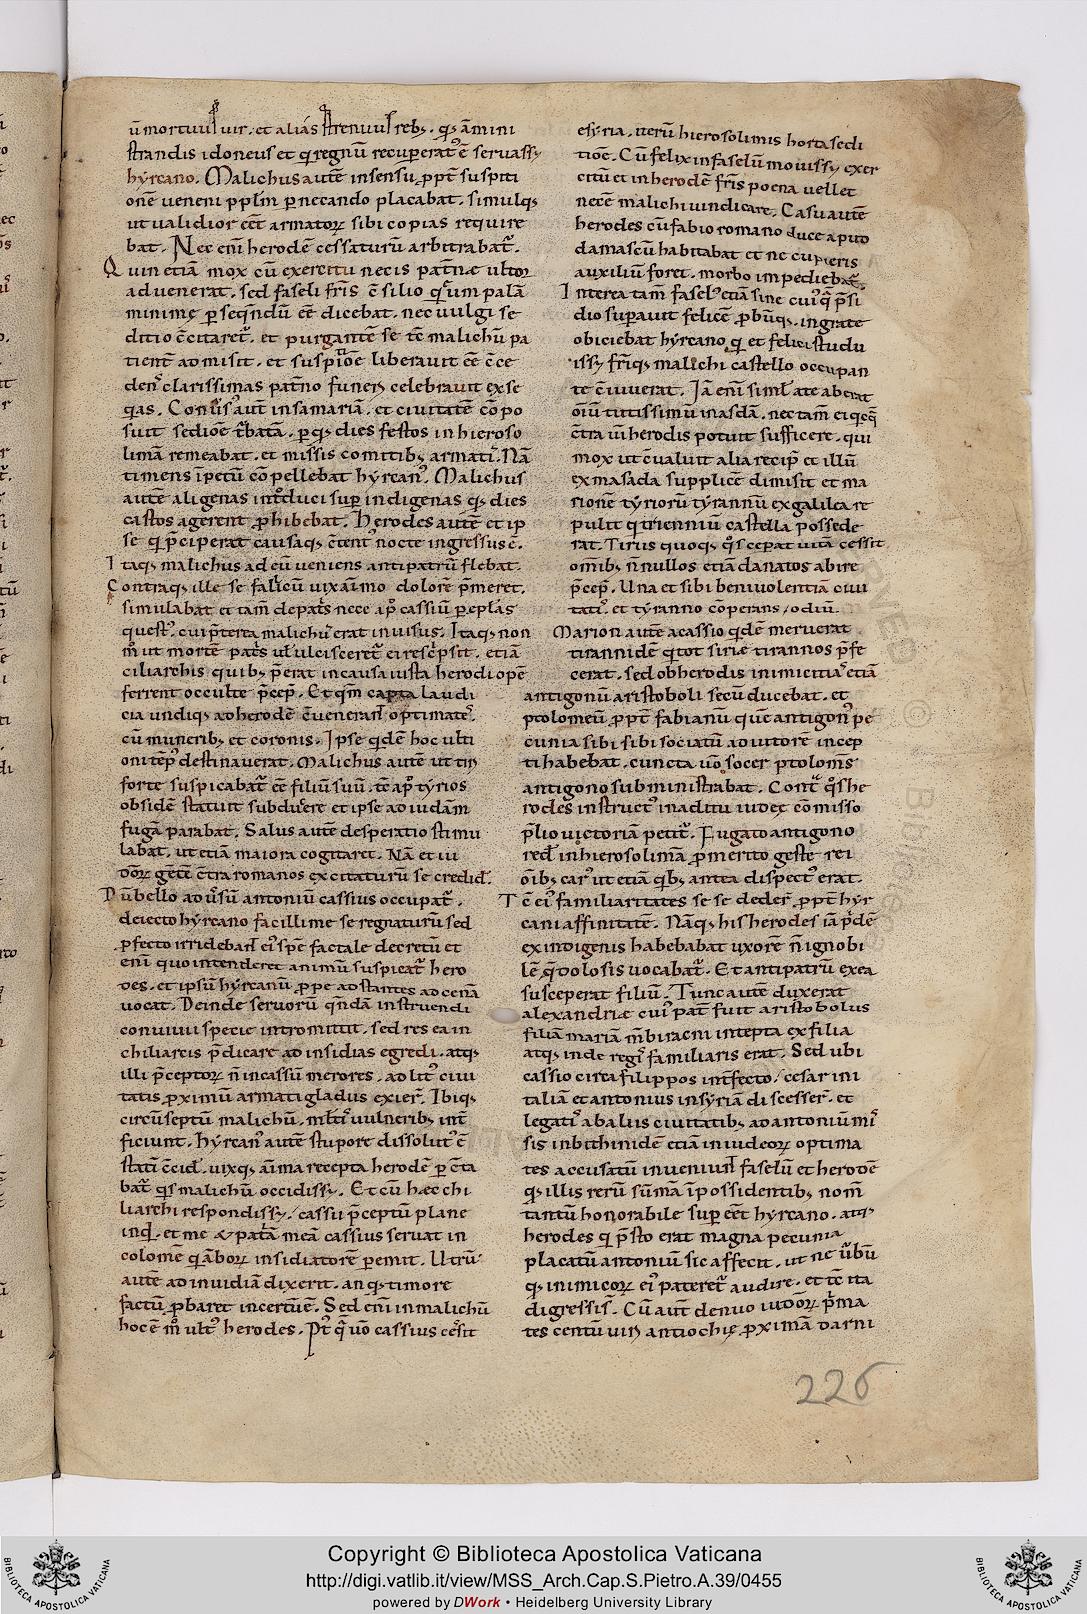 ū mortuuſ uir. et aliás ſtrenuuſ rebꝫ. qꝫ āmini
ſtrandis idoneuſ et q regnū recuperat᷒ ē seruassꝫ
hyrcano. Malichus autē insensu ꝓpt̄ suspiti
onē ueneni ppłm p necando placabat. simulqꝫ
ut ualidior eēt armatoꝝ sibi copias require
bat. Nec eni̅ herodē cessaturū arbitrabat᷑.
Quin etiā mox cū exercitu necis pat̄næ ultor
aduenerat. sed faseli fr̄is ē silio qͥ um palā
minime p seqn̄dū eē dicebat. nec uulgi se
ditio c̄citaret᷑. et purgantē se tē malichū pa
tient̄ admisit. et suspiꝯ̄e liberauit eē c̄ce
den᷒ clarissimas pat̄no funerꝫ celebrauit exse
qas. Conūs᷒ aut̄ in samariā. et ciuitatē cō po
suit sediōe t̄batā. ꝑqꝫ dies festos in hieroso
limā remeabat. et missis comitibꝫ armati᷒. Nā
timens īpetū cō pellebat hyrcan᷒. Malichus
autē aligenas int̄duci sup indigenas qꝫ dies
castos agerent ꝓhibebat. Herodes autē et ip
se q p̄ciperat causaqꝫ c̄tent᷒ nocte ingressus ē.
Itaqꝫ malichus ad eū ueniens antipatrū flebat.
Contraqꝫ ille se falłi cū uix aīmo dolorē p̄meret.
simulabat et tam̄ de pat̄s nece ap᷒ cassiū p ep̄las
quest᷒. cui p̄terea malichu᷒ erat inuisus. Itaqꝫ non
m̊ ut mortē pat̄s ut ulcisceret᷑ ei resc̄psit. etiā
ciliarchis quibꝫ p̄erat in causa iusta herodi opē
ferrent occulte p̄cep̄. Et qm̄ capta laudi
cia undiqꝫ ad herodē c̄uenerant optimate᷒.
cū muneribꝫ et coronis. Ipse qͥdē hoc ulti
oni tēp᷒ destinauerat. Malichus autē ut tiri
forte suspicabat᷑ eē filiū suū. tē ap᷒ tyrios
obsidē statuit subducere et ipse ad iudam
fugā parabat. Salus autē desperatio stimu
labat. ut etiā maiora cogitaret. Nā et iu
doꝝ gētē c̄tra romanos excitaturū se credid᷒.
Dū bello aduersū antoniū cassius occupat᷑.
deiecto hyrcano facillime se regnaturū sed
ꝓfecto irridebant ei᷒ spē factale decretū et
eni̅ quo intenderet animū suspicat᷑ hero
des. et ipsū hyrcanū ꝓpe adstantes ad cenā
uocat. Deinde seruorū qn̄dā instruendi
conuiuii specie intromittit. sed res ea in
chiliarcis p̄dicare ad insidias egredi. atqꝫ
illi p̄ceptoꝝ n̄ incassū memores. ad lit᷒ ciui
tatis ꝓximū armati gladiis exier̄. Ibiqꝫ
circūseptū malichū. mltis uulneribꝫ int̄
ficiunt. hyrcan᷒ autē stupore dissolut᷒ ē
statī c̄cid̄. uixqꝫ aīma recepta herodē p c̄ta
bat᷑ qͥs malichū occidissꝫ. Et cū hæc chi
liarchi respondissꝫ. cassii p̄ceptū plane
inqͥt. et me & pat̄ā meā cassius seruat in
colomē q āboꝝ insidiatorē pemit. Utrū
autē ad inuidiā dixerit. an qꝫ timore
factū ꝓbaret incertū ē. Sed eni̅ in malichū
hoc ē m̊ ult᷒ herodes. Pt̄ q̄ uo cassius cessit
esyria. uerū hierosolimis horta sedi
tiōe. Cū felix in faselū mouissꝫ exer
citū et in herodē fr̄is poena uellet
necē malichi uindicare. Casu autē
herodes cū fabio romano duce apud
damascū habitabat et ne cuperis
auxiliū foret. morbo impediebat᷑.
Interea tam̄ fasel᷒ etiā sine cui᷒qͣ p̄si
dio superauit felicē ꝓbr̄isqꝫ. ingrate
obiciebat hyrcano. q et felici studu
issꝫ fr̄iqꝫ malichi castello occupan
te c̄niuerat. Iā eni̅ simł ate aberat
oiū tutissimū masdā. nec tam̄ ei qcqꝫ
c̄tra uī herodis potuit sufficere. qui
mox ut c̄ualuit alia recip̄ et illū
ex masada supplicē dimisit et ma
rionē tyriorū tyrannū ex galilea re
pulit q triennū castella possede
rat. Tirus quoqꝫ q̊s cepat uitā cessit
om̄ibꝫ n̄nullos etiā dānatos abire
p̄cep̄. Una et sibi beniuolentiā ciui
tati᷒. et tyranno cōperans odiū.
Marion autē a cassio qͥdē meruerat
tirannidē qͥ tot siriæ tirannos p̄fe
cerat. sed ob herodis inimicitia᷒ etiā
antigonū aristoboli secū ducebat. et
ptolomeū ꝓpt̄ fabianū quē antigon᷒ pe
cunia sibi sibi sociatū adiutorē incep
ti habebat. cuncta uō socer ptolom̄s
antigono subministrabat. Cont᷑ q̊s he
rodes instruct᷒ in aditu iudeę cō misso
p̄lio uictoriā petit᷑. Fugato antigono
red̄ in hierosolimā ꝓ merito geste rei
oībꝫ car᷒ ut etiā qbꝫ antea dispect᷒ erat.
Tē ei᷒ familiaritates se se deder̄ ꝓpt̄ hyr
cani affinitatē. Nāqꝫ his herodes iā p̄dē
ex indigenis habebabat uxorē n̄ ignobi
lē q̄ dolosis uocabat᷑. Et antipatrū ex ea
susceperat filiū. Tunc autē duxerat
alexandriæ cui᷒ pat̄ fuit aristobolus
filiā mariā nī hiracni intepta ex filia
atqꝫ inde regi᷒ familiaris erat. Sed ubi
cassio circa filippos int̄fecto. cesar in i
taliā et antonius in syriā discesser̄. et
legati᷒ ab aliis ciuitatibꝫ ad antoniū mi᷒
sis in bithinidē etiā in iudeoꝝ optima
tes accusatū inueniunt faselū et herodē
qꝫ illis rerū sūmā īpossidentibꝫ nom̄
tantū honorabile sup eēt hyrcano. atqꝫ
herodes q p̄sto erat magna pecunia
placatū antoniū sic affecit. ut ne ūbū
qꝫ inimicoꝝ ei᷒ pateret᷑ audire. et tē ita
digressis᷒. Cū aut̄ denuo iudoꝝ p̄ma
tes centū uirꝫ antiochię ꝓximā darni
226
Copyright © Biblioteca Apostolica Vaticana
http://digi.vatlib.it/view/MSS_Arch.Cap.S.Pietro.A.39/0455
powered by DWork • Heidelberg University Library